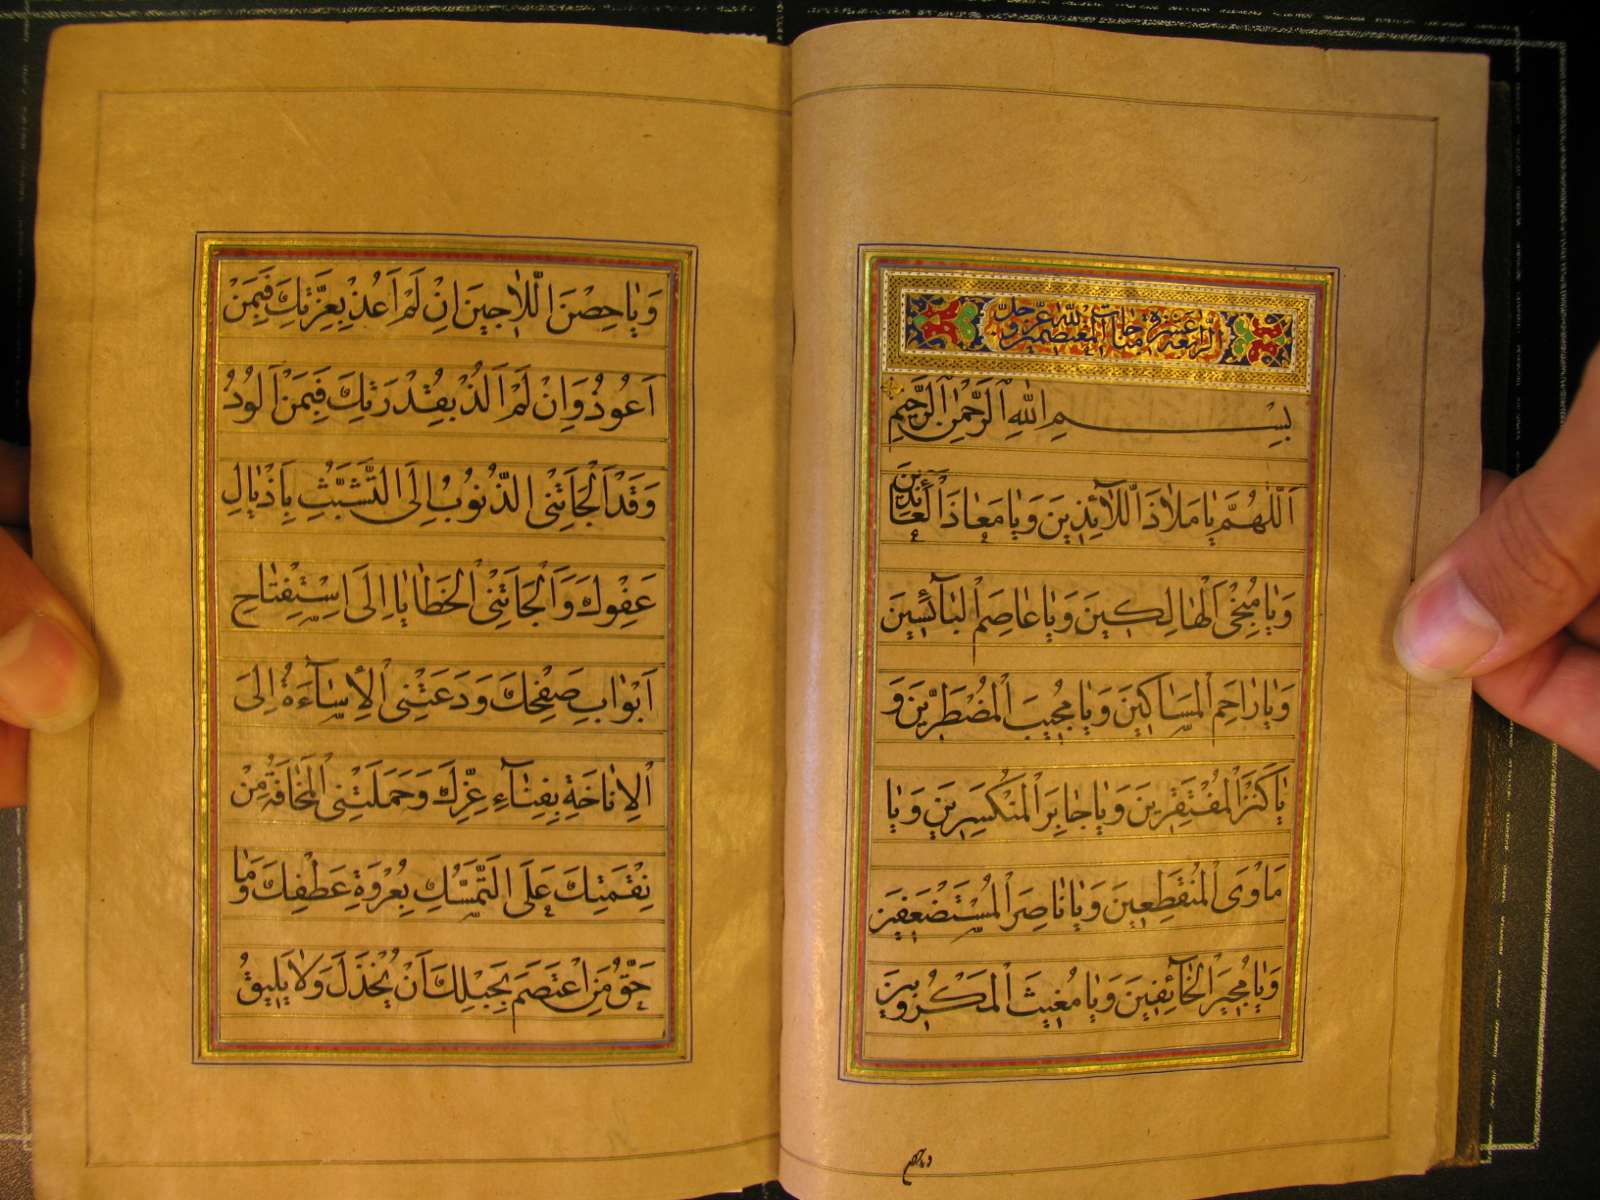 الرابعة عشرة مناجات المعتصمين بالله عز وجل
بِسْمِ اللهِ الرَّحْمٰنِ الرَّحِيمِ
اَللّٰهُمَّ يٰا مَلاٰذَ اللّٰائِذِينَ وَيٰا مَعٰاذَ الْعٰائِذِينَ
وَيٰا مُنْجِىَ الْهٰالِكِينَ وَيٰا عٰاصِمَ الْبٰآئِسِينَ
وَيٰا رٰاحِمَ الْمَسٰاكِينَ وَيٰا مُجِيبَ الْمُضْطَرِّينَ وَ
يٰا كَنْزَ الْمُفْتَقِرِينَ وَيٰا جٰابِرَ الْمُنْكَسِرِينَ وَيٰا
مَاْوَى الْمُنْقَطِعِينَ وَيٰا نٰاصِرَ الْمُسْتَضْعَفِينَ
وَيٰا مُجِيرَ الْخٰآئِفِينَ وَيٰا مُغِيثَ الْمَكْرُوبِينَ
وَيٰا حِصْنَ اللّٰاجِينَ اِنْ لَمْ اَعُذْ بِعِزَّتِكَ فَبِمَنْ
اَعُوذُ وَاِنْ لَمْ اَلُذْ بِقُدْرَتِكَ فَبِمَنْ اَلُوذُ
وَقَدْ اَلْجَاَتْنِى الذُّنُوبُ اِلَى التَّشَبُّثِ بِاَذْيٰالِ
عَفْوِكَ وَاَلْجَاَتْنِى الْخَطٰايٰا اِلَى اسْتِفْتٰاحِ
اَبْوٰابِ صَفْحِكَ وَدَعَتْنِى الْاِسٰآءَةُ اِلَى
الْاِنٰاخَةِ بِفِنٰآءِ عِزِّكَ وَحَمَلَتْنِى الْمَخٰافَةُ مِنْ
نِقْمَتِكَ عَلَى التَّمَسُّكِ بِعُرْوَةِ عَطْفِكَ وَمٰا
حَقُّ مَنِ اعْتَصَمَ بِحَبْلِكَ اَنْ يُخْذَلَ وَلاٰ يَلِيقُ